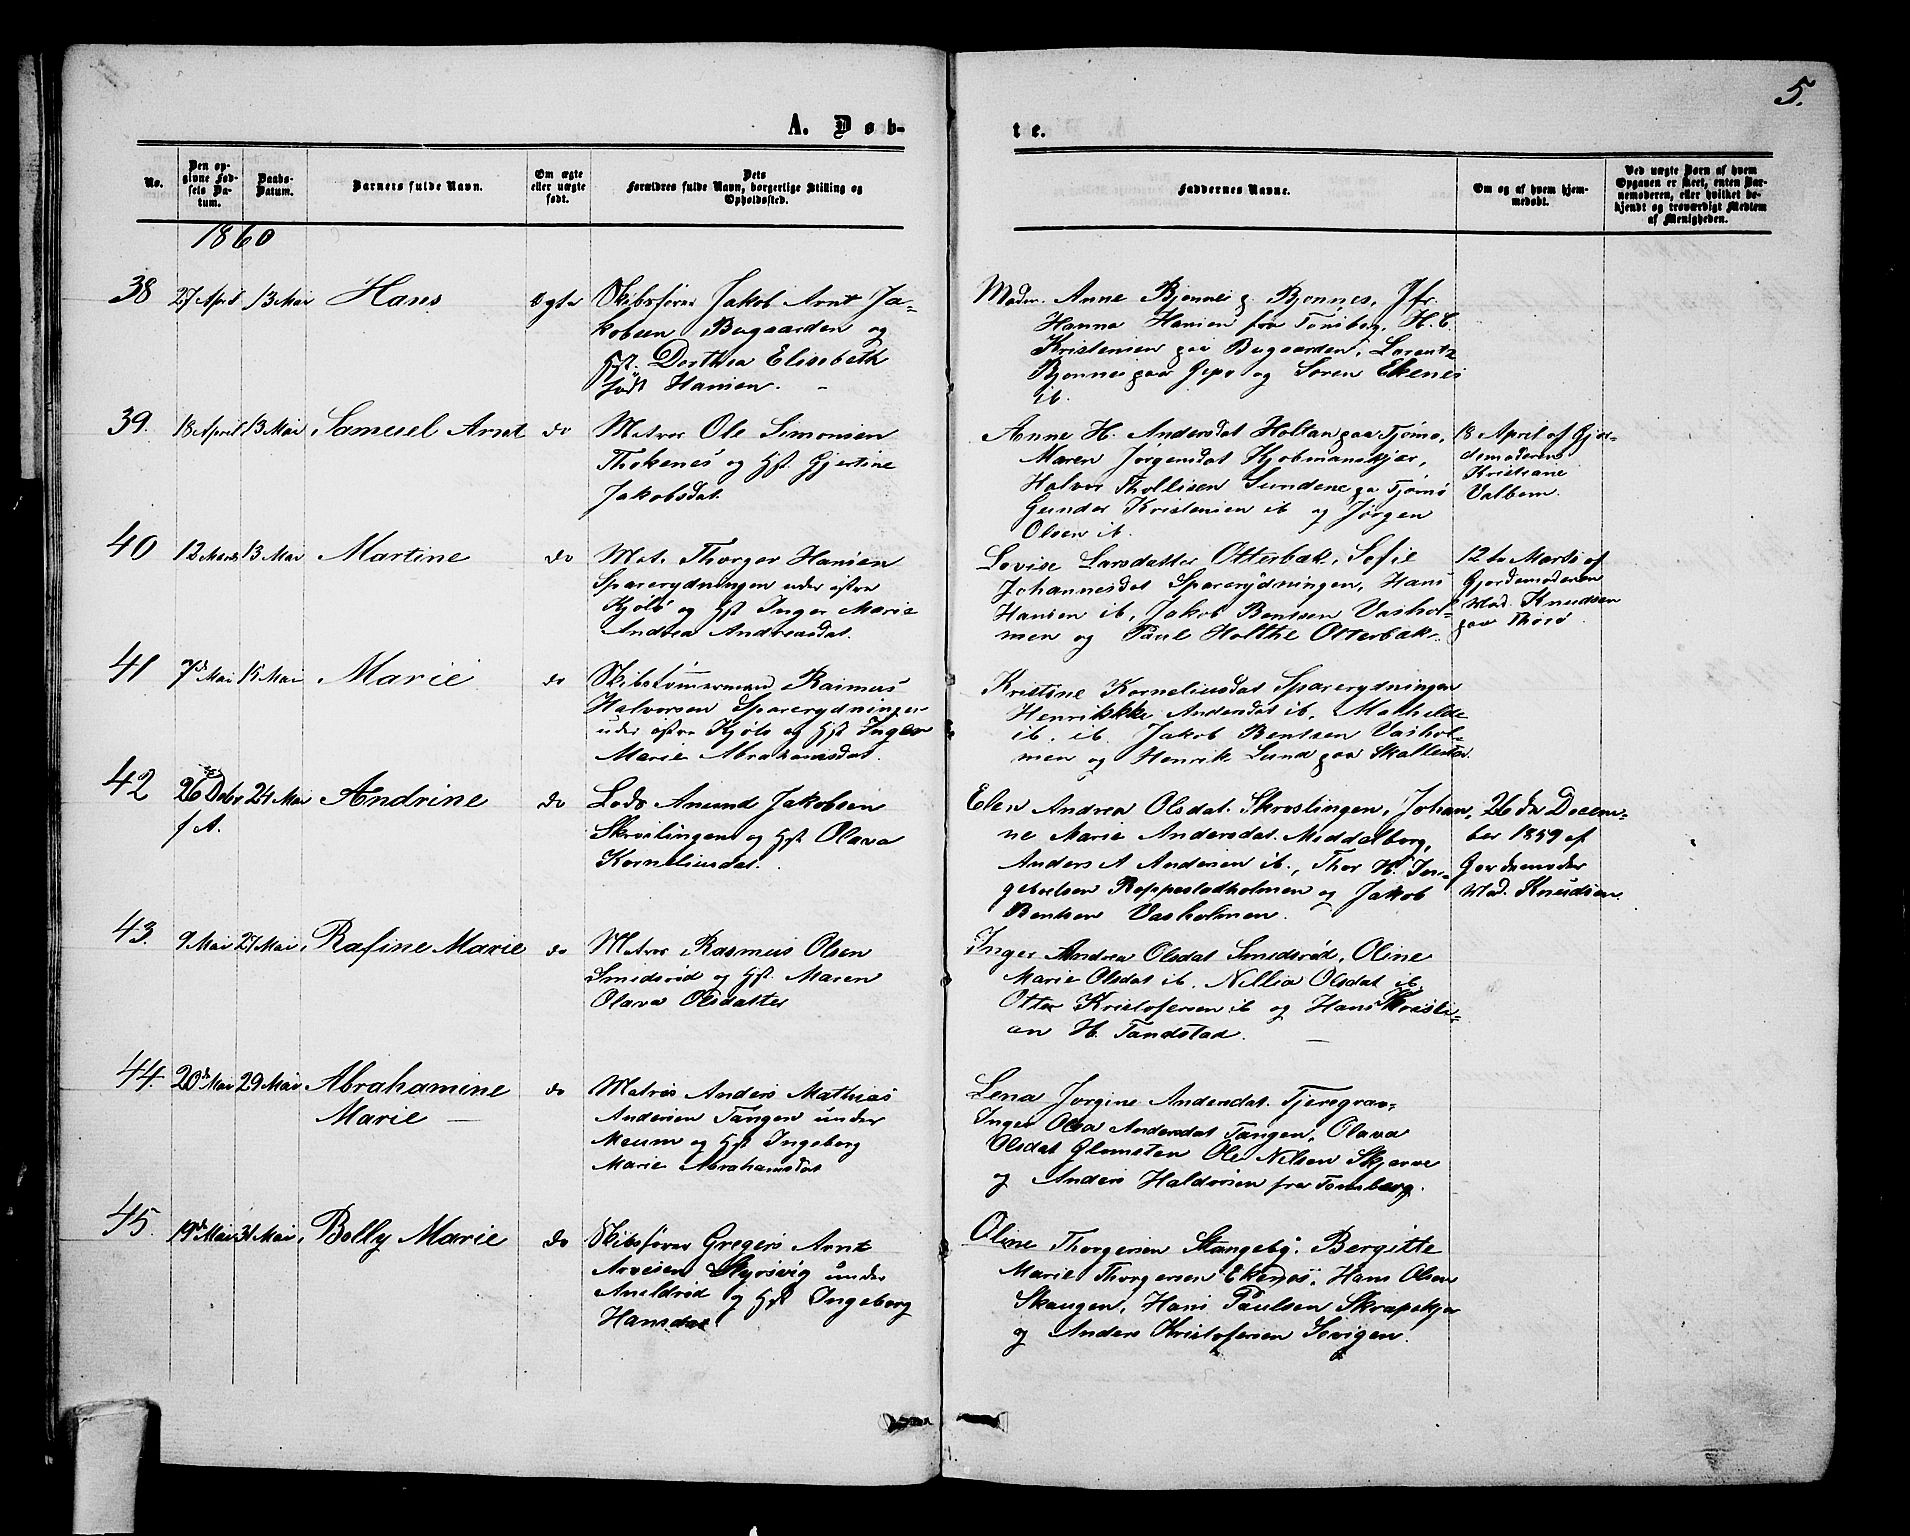 5.
A. Døb-
te.
No.
Den op-
givne Fød-
sels Da-
tum.
Daabs-
Datum.
Barnets fulde Navn.
Om ægte
eller uægte
født.
Dets
Forældres fulde Navn, borgerlige Stilling og
Opholdssted.
Faddernes Navne.
Om og af hvem hjem-
medøbt.
Ved uægte Børn af hvem
Opgaven er skeet, enten Bar-
nemoderen, eller hvilket be-
kjendt og troværdigt Medlem
af Menigheden.
1860
38 27 April 13 Mai Hans ægte Skibsfører Jakob Arnt Ja-
kobsen Bugaarden og
Hst. Dorthea Elisebeth
født Hansen.
Moder. Anne Bjønnes, Jfr.
Hanna Hansen fra Tønsberg, H. C.
Kristensen paa Bugaarden, Lorentz
Bjønnes paa og Søren Ekenes
ib.
39. 18 April 13 Mai Samuel Arnt do Matros Ole Simonsen
Thokenes og Hst. Gjertine
Jakobsdat.
Anne H. Andersdat Holtan paa Tjømø,
Maren Jørgensdat Kjøbmanskjær,
Halvor Thollisen Sundene pa Tjømø
Gunder Kristensen ib og Jørgen
Olsen ib.
18 April af Gjor-
demoderen
Kristiane
Valbom.
40 12 Marts 13 Mai Martine do Mat. Thorger Hansen
Sparerydningen under østre
Kjølø og Hst Inger Marie
Andrea Andreasdat.
Lovise Larsdatter Otterbæk, Sofie
Johannesdat Sparerydningen, Hans
Hansen ib, Jakob Bentsen Vashol-
men og Paul Holthe Otterbæk.
12te Marts af
Gjordemoderen
Mad. Knudsen
paa Thorsø.
41 7de Mai 15 Mai Marie do Skibstømmermand Rasmus
Halvorsen Sparerydningen
under østre Kjølø og Hst Inger
Marie Abrahamsdat.
Kristine Korneliusdat Sparerydningen
Henrikkke Andersdat ib, Mathilde
ib. ib. Jakob Bentsen Vashol-
men og Henrik Lund paa Skallestad.
42 26de Debr 24 Mai Andrine do Lods Anund Jakobsen
f A.
Skrøslingen og Hst Olava
Korneliusdat.
Elen Andrea Olsdat. Skrøslingen, Johan-
ne Marie Andersdat. Middelborg,
Anders A Andersen ib., Thor H. In-
gebretsen Roppestadholmen og Jakob
Bentsen Vasholmen.
26de Decem-
ber 1859 af
Gjordemoder
Mad. Knudsen.
43. 9 Mai 27 Mai Rafine Marie do Matros Rasmus Olsen
Smidsrød og Hst. Maren
Olava Olsdatter
Inger Andrea Olsdat Smidsrød, Oline
Marie Olsdat ib. Nillia Olsdat ib.
Otter Kristofersen ib og Hans Kristi-
an H. Tandstad.
44. 20de Mai 29 Mai Abrahamine do Matros Anders Mathias
Marie —
Andersen Tangen under
Meum og Hst Ingeborg
Marie Abrahamsdat
Lena Jørgine Andersdat. Tjeregrav,
Inger Olsa Andersdat Tangen, Olava
Olsdat Glomsten Ole Nilsen Skjerve
og Anders Haldorsen fra Tønsberg.
45. 19de Mai 31 Mai Bolly Marie do Skibsfører Gregers Arnt
Arvesen Styrsvig under
Arildrød og Hst Ingeborg
Hansdat.
Oline Thorgersen Stangeby. Bergitte
Marie Thorgersen Ekenes, Hans Olsen
Skaugen, Hans Paulsen Skrapekjer
og Anders Kristofersen Sevigen.